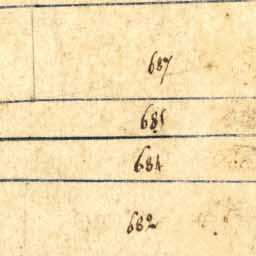 687
685
684
682